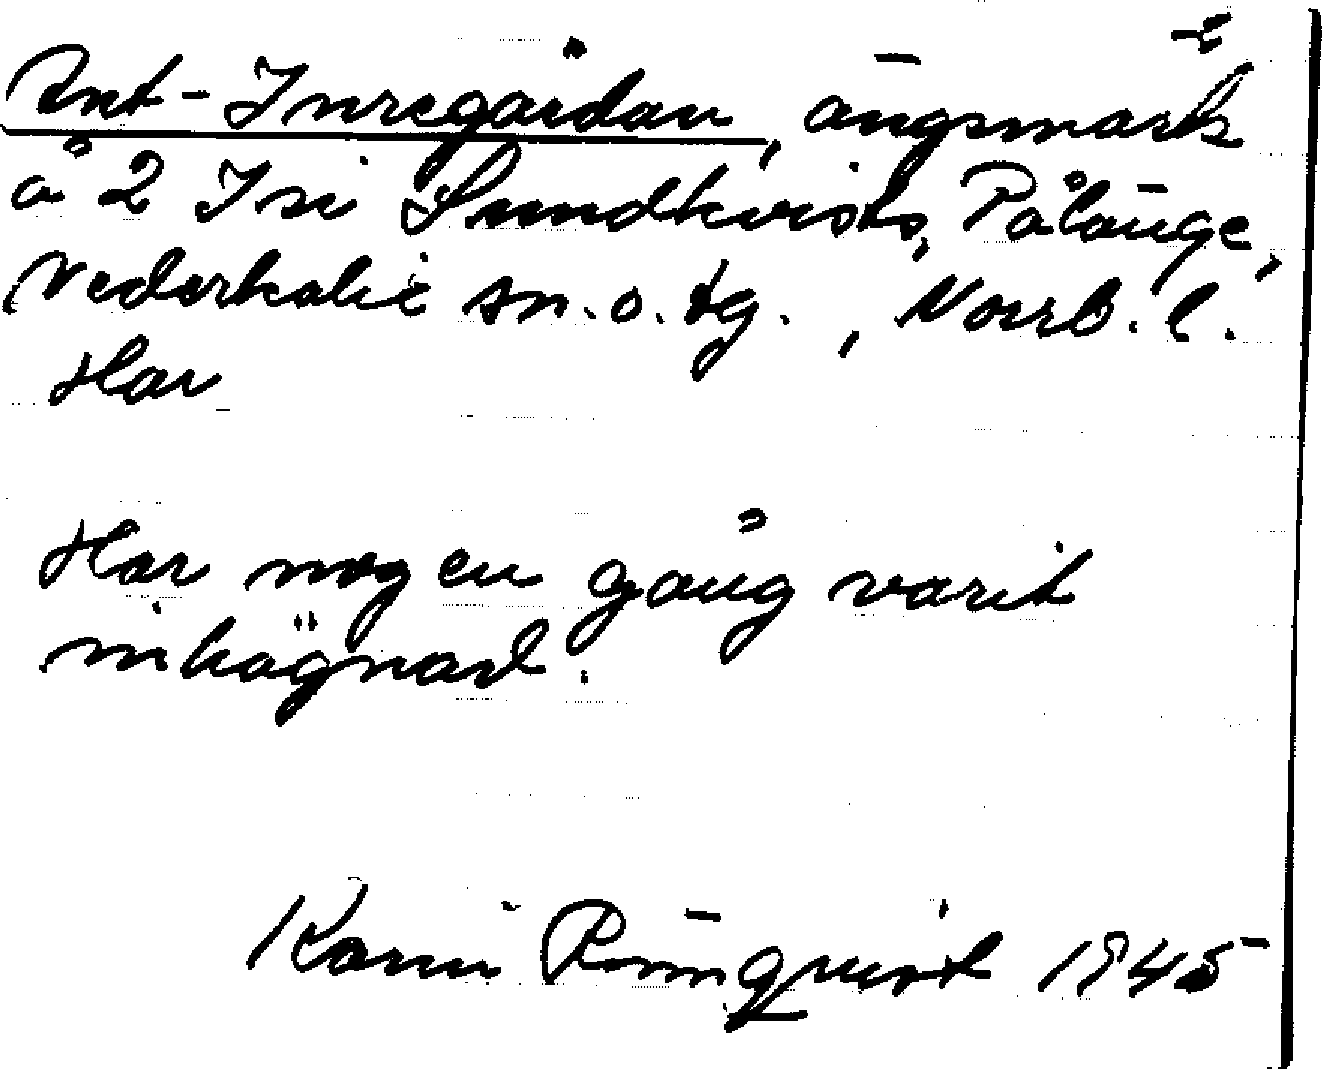 Ant-Inregårdan, ängsmark
å 2 Isi Sundkvists, Pålänge,
Nederkalix sn. o. tg., Norrb. l.
Har
Har nog en gång varit
inhägnad.
Karin Rönnquist 1945